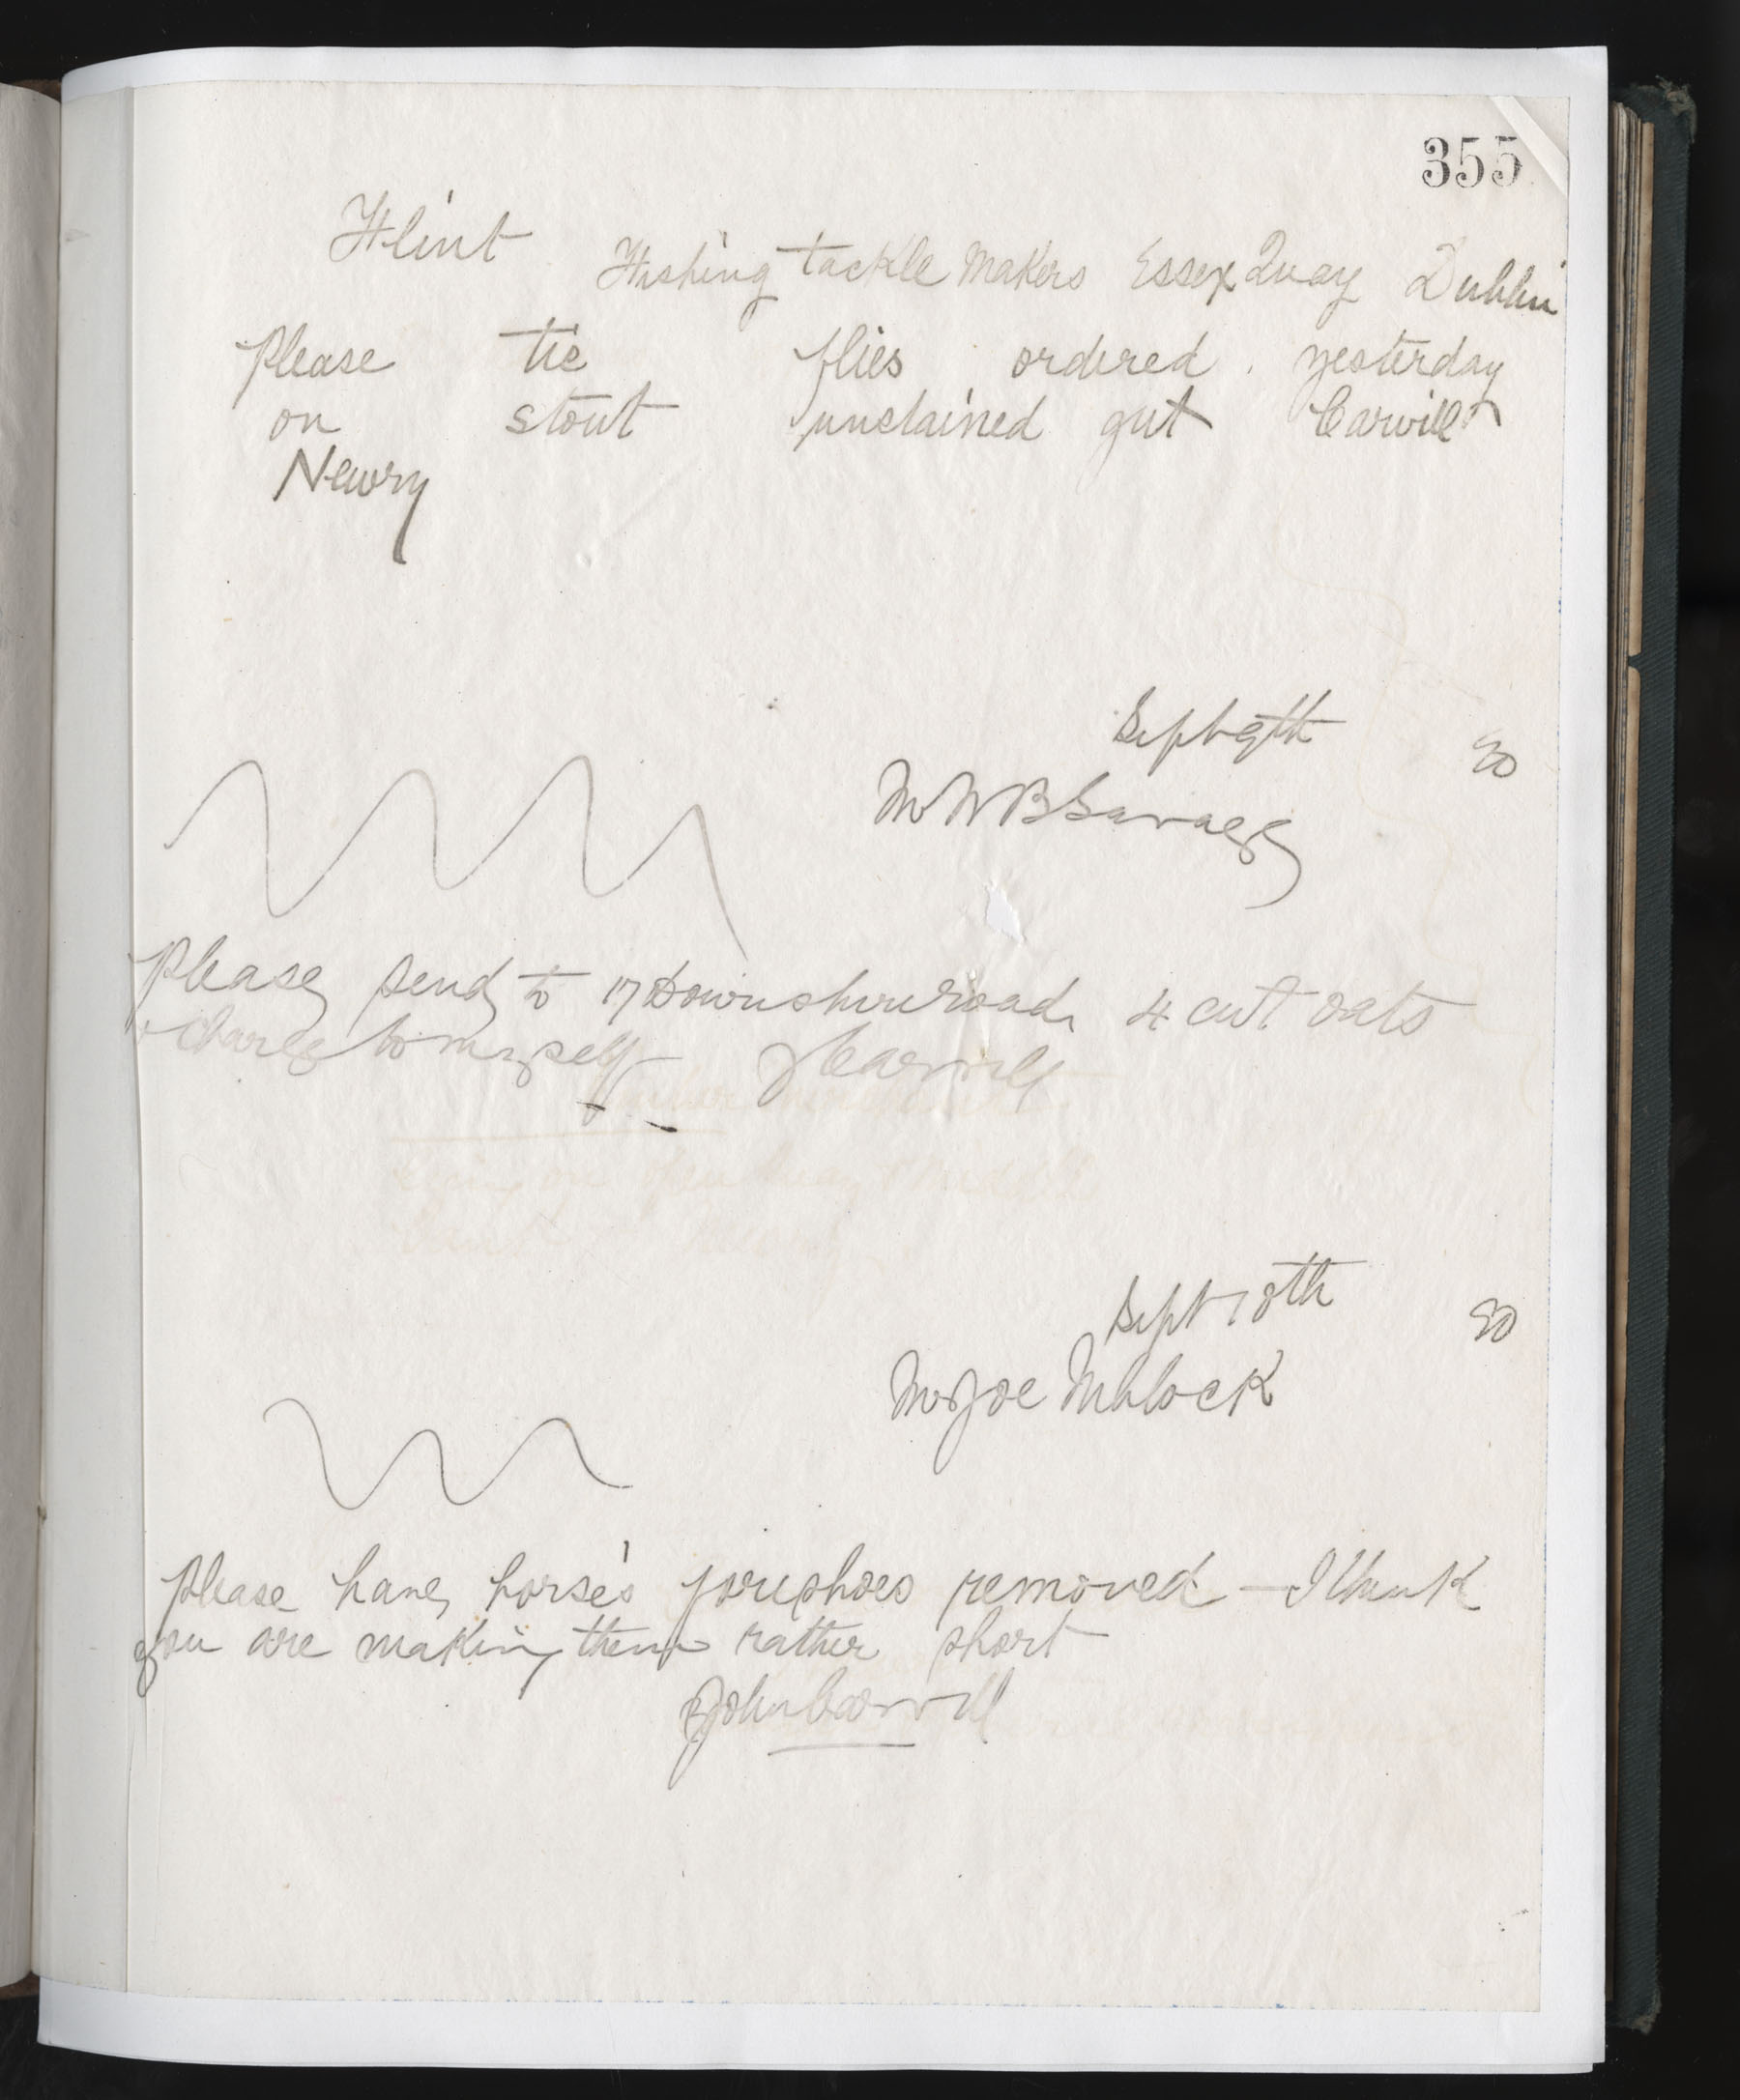 355
Flint Fishing tackle Makers Essex Quay Dublin
Please tie flies ordered yesterday
on stout unstained gut Carvill
Newry
Sept 9th 90
Mr W B Savage
Please send to 17 Downshire road 4 cwt oats
& charge to myself J Carvill
Sept 10th 90
Mr Joe Mblock
Please have horse's foreshoes removed — I think
you are making them rather short
John Carvill